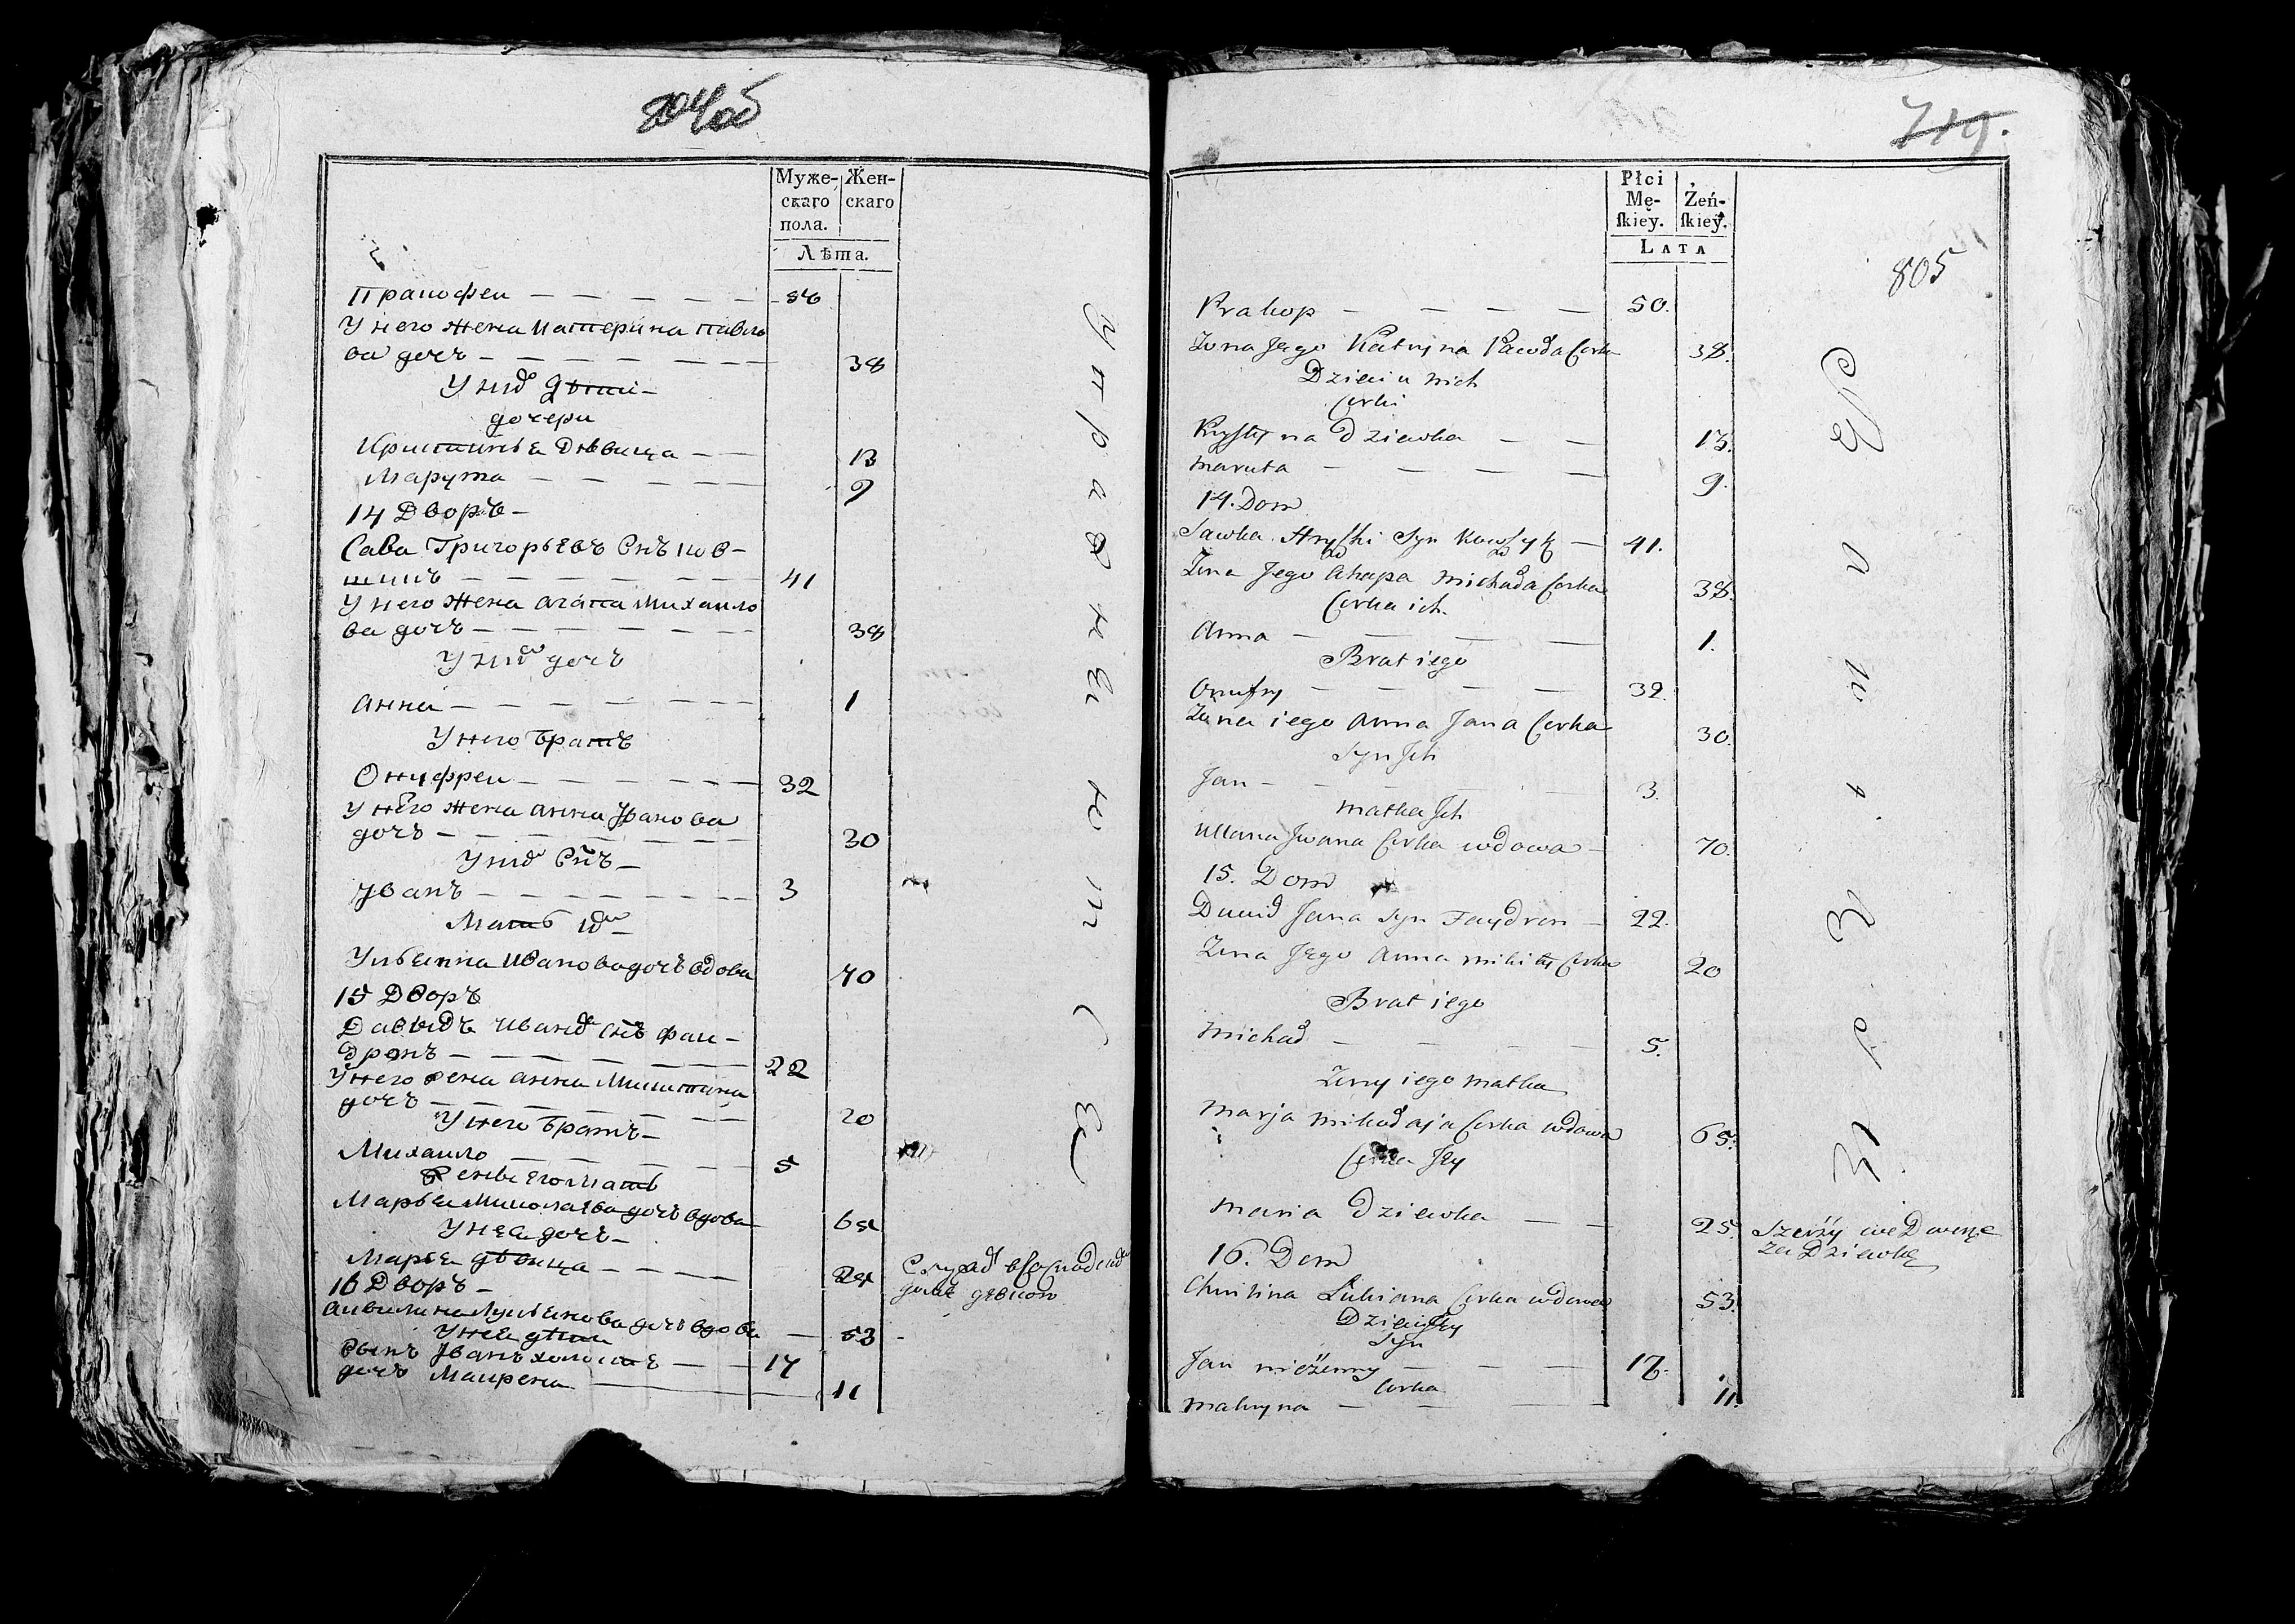 804 об
Муже-
скаго
пола.
Жен-
скаго
Лѣта.
Пракофеи — 50
У него жена Катерина Павло
ва дочь — 38
У них дѣти —
дочери
Кристинья девица — 13
Марута — 9
14 Дворъ —
Сава Григорьевъ снъ Ков-
шикъ — 41
У него жена Агапа Михаило
ва дочь — 38
У них дочь
Анна — 1
У него братъ
Онуфреи — 32
У него жена Анна Иванова
дочь — 30
У них снъ —
Иванъ — 3
Мать их —
Ульянна Иванова дочь вдова 70
15 Дворъ
Давыдъ Иванов снъ Фаи-
дронъ — 22
У него жена Анна Микитина
дочь — 20
У него братъ —
Михаило — 5
Жены его мать
Марья Миколаева дочь вдова 65
У неа дочь —
Марья девица — 25
16 Дворъ —
Лукьянова дочь вдова — 53
У неа дѣти
Сынъ Иванъ холостъ — 17
дочь Макрена — 11
719.
805
Płci
Mę-
ſkiey.
Żeń-
ſkiey.
LATA
Prakop — 50.
Zona Jego Katryna Pawła Corka 38.
Dzieci u nich
Corki
Krystyna Dziewka — 13.
Maruta — 9.
14. Dom
Sawka Hryſki Syn Kowszyk — 41.
Zona Jego Ahapa Michała Corka 38.
Corka ich
Anna — 1.
Brat iego
Onufry — 32.
Zona iego Anna Jana Corka 30.
Syn Jch
Jan — 3.
Matka Jch
Ullana Jwana Corka wdowa — 70.
15. Dom
Dawid Jana Syn Faydron — 22.
Zona Jego Anna Mikity Corka 20
Brat iego
Michał — 5.
Zony iego Matka
Marja Mikołaja Corka wdowa 65.
Corka Jey
Maria Dziewka — 25.
we Dworze
za Dziewkę
16. Dom
Lukiana Corka wdowa 53.
Dzieci Jey
Syn
Jan nieżenny — 17.
Corka
Makryna — 11.